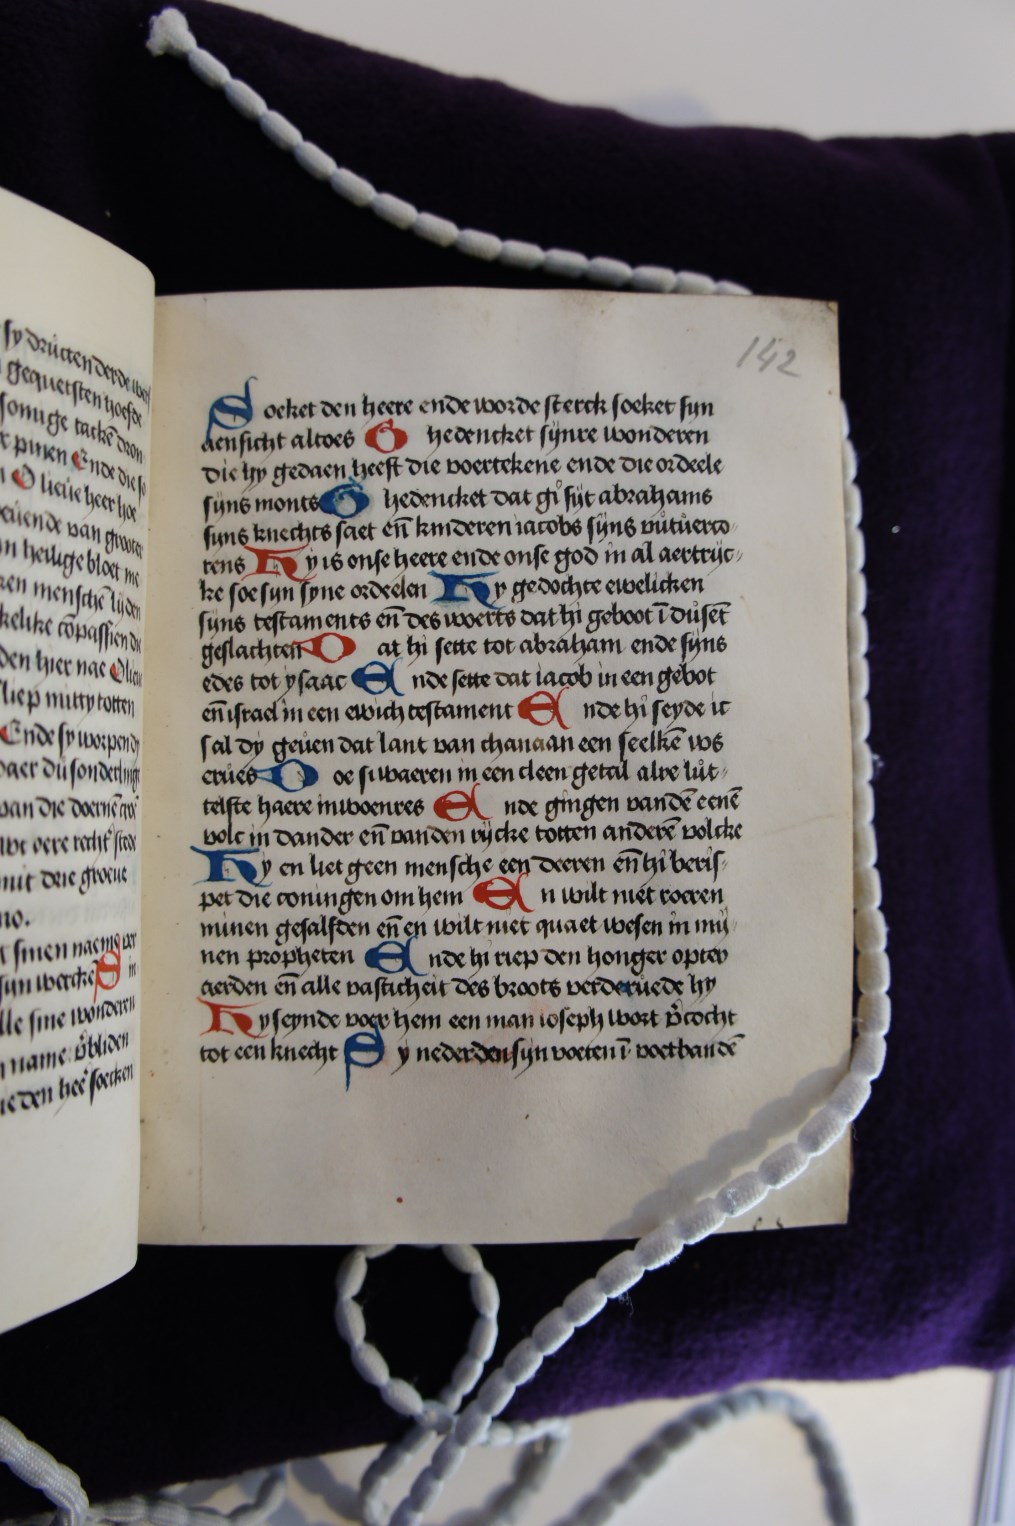 sy dructen der de
gequetsten hoefde
sommige tacke dron
pinen Ende die so
O lieue heer hoe
euende van groter
n heilige bloet me
ren mensche lyden
kelike cōpassien die
den hier nae O lieue
liep mitty totten
Ende sy worpen dy
daer du sonderlinge
van die doernē
oere rechtˀ stede
mit dele groeue
no.
sinen name
syn wercke S in
lle sine wonderen
name vˀbliden
ie den heeˀ soecken
142
Soeket den heere ende worde sterck soeket syn
aensicht altoes Ghedencket synre wonderen
die hy gedaen heeft die voertekene ende die ordeele
syns monts Ghedencket dat gi syt abrahams
syns knechts saet en̄ kinderen iacobs syns vutuerco-
rens Hy is onse heere ende onse god in al aertryc-
ke soe syn syne ordeelen Hy gedochte ewelicken
syns testaments en̄ des woerts dat hi geboot ī dusēt
geslachten Dat hi sette tot abraham ende syns
edes tot ysaac Ende sette dat iacob in een gebot
en̄ israel in een ewich testament Ende hi seyde ic
sal dy geuen dat lant van chanaan een seelkē vws
erues Doe si waeren in een cleen getal alre lut-
telste haere inwoenres Ende gingen vandē eenē
volc in dander en̄ vanden rycke totten anderē volcke
Hy en liet geen mensche een deeren en̄ hi beris-
pet die coningen om hem En wilt niet roeren
minen gesalfden en̄ en wilt niet quaet wesen in my-
nen propheten Ende hi riep den honger optey
aerden en̄ alle vasticheit des broots verderuede hy
Hy seynde voer hem een man ioseph wort vˀcocht
tot een knecht Sy nederden syn voeten ī voetbandē